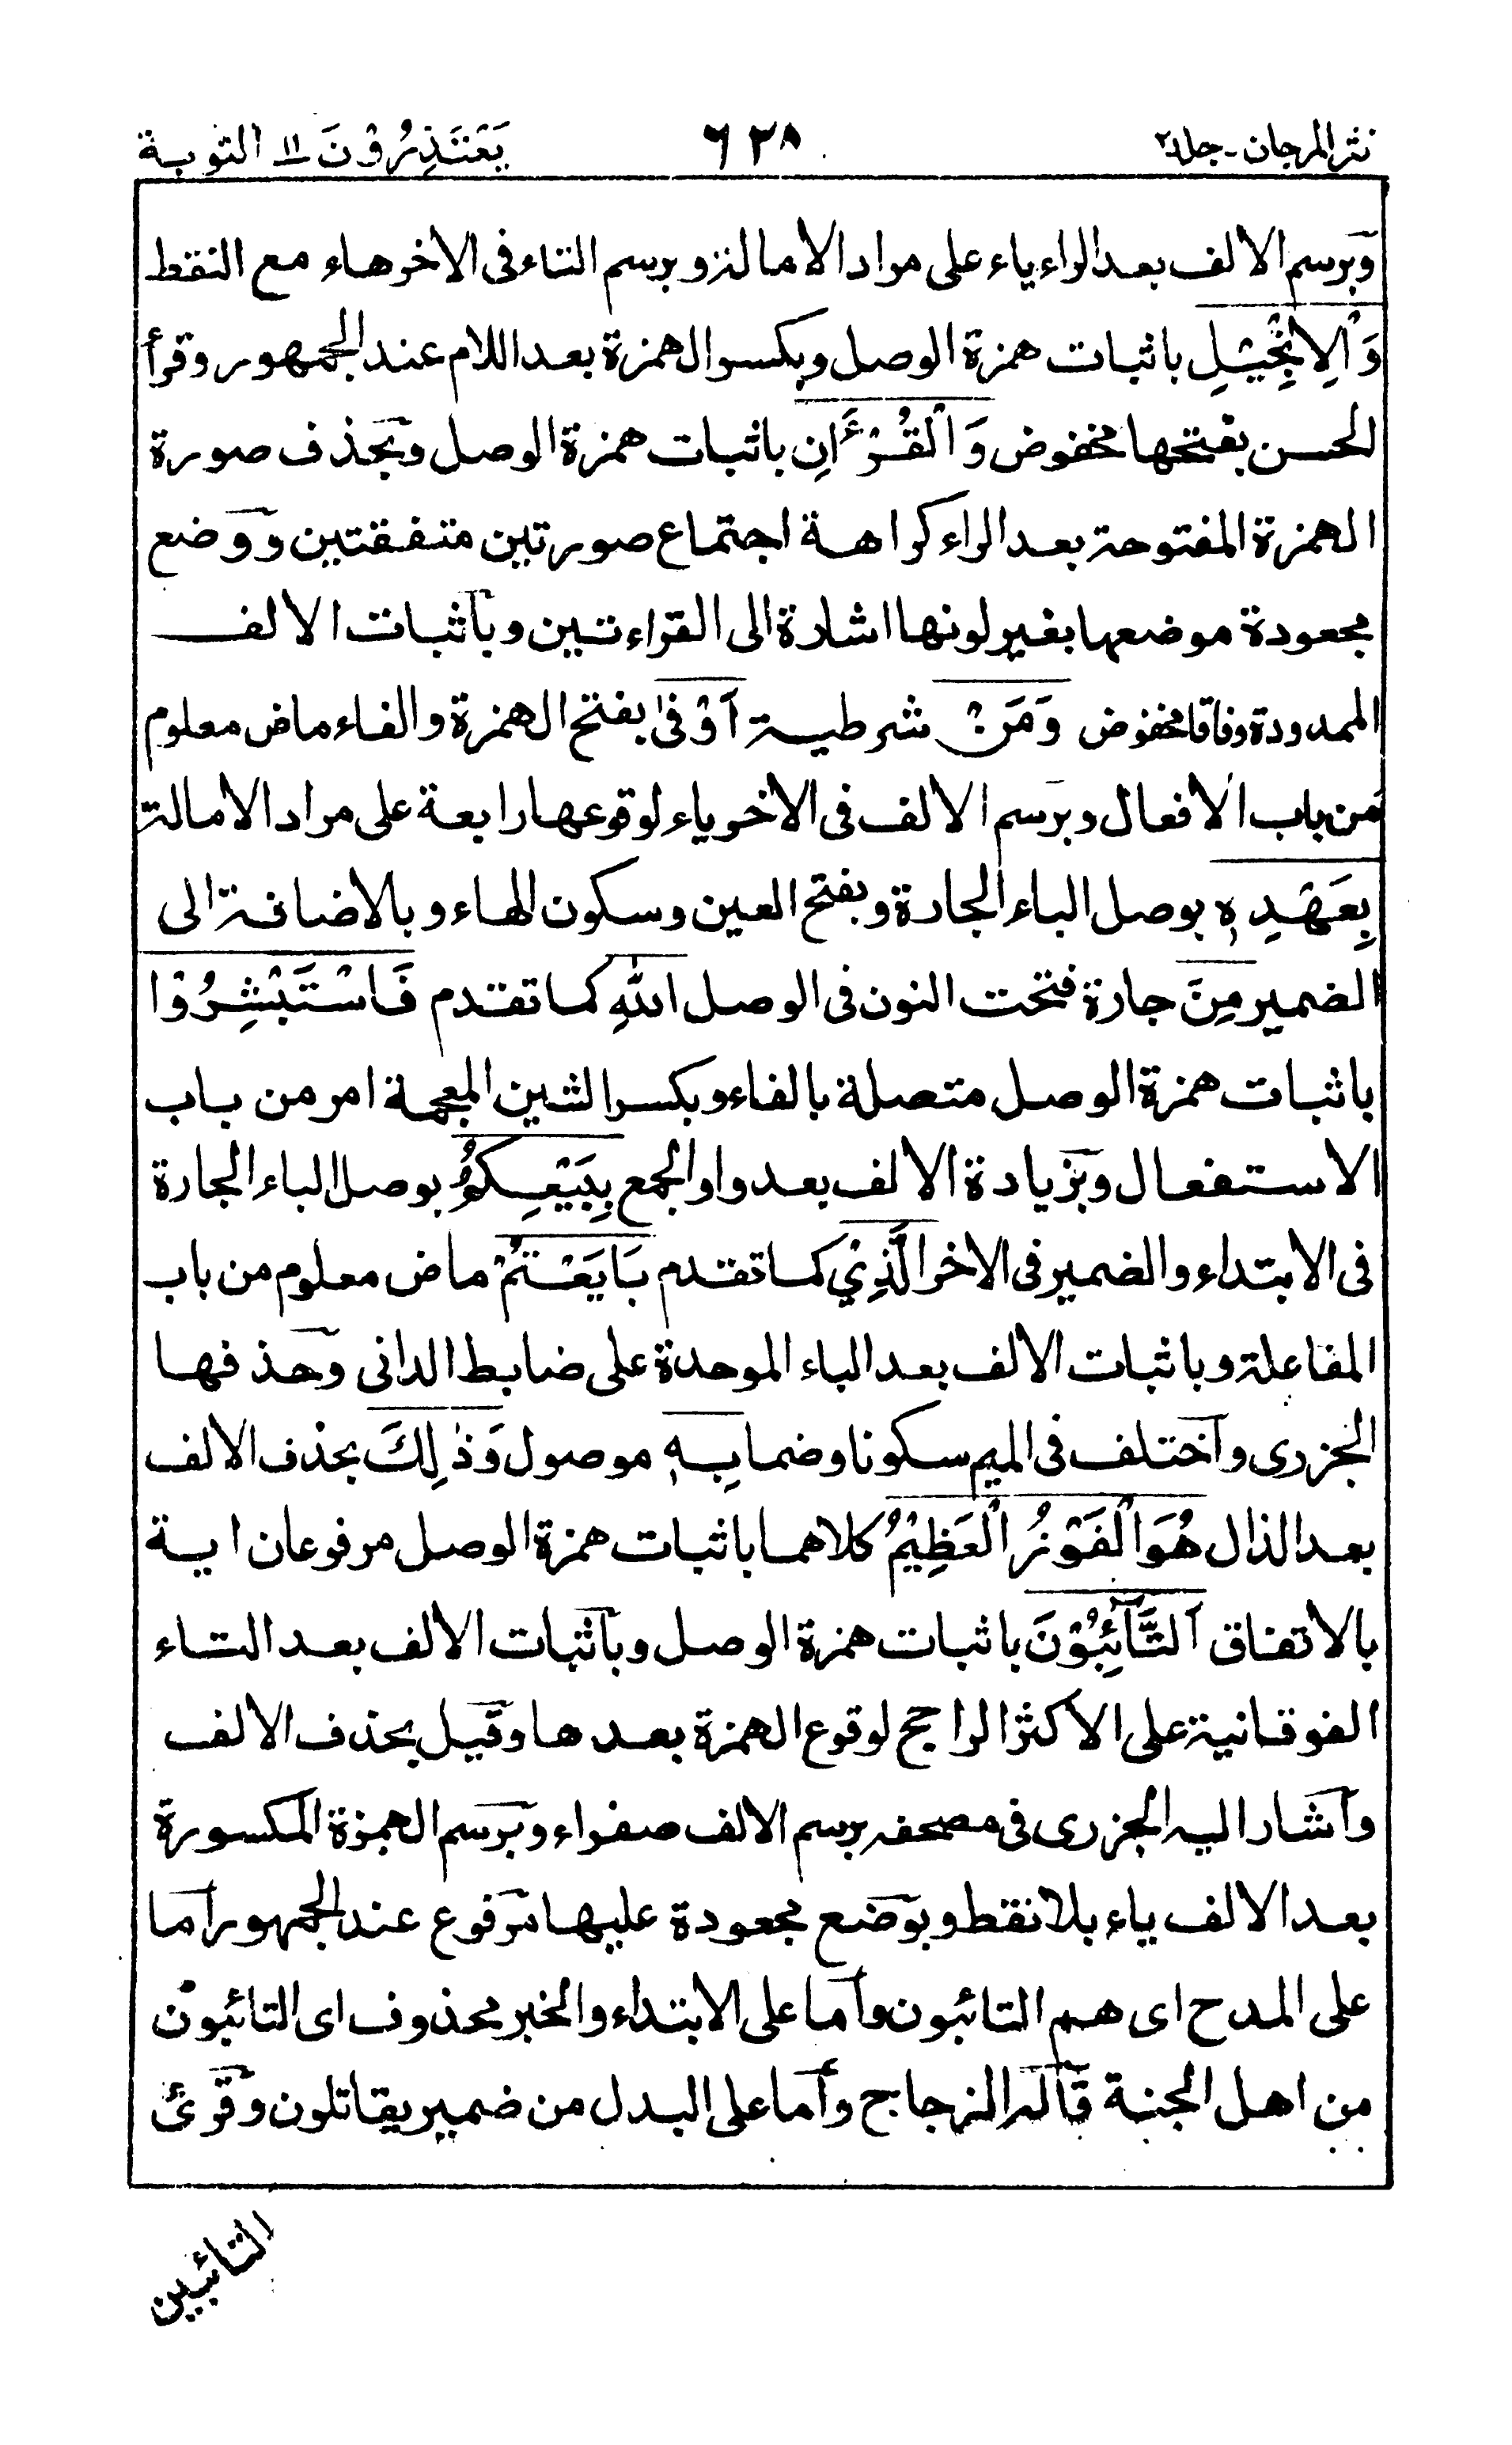 نثر المرجان - جلد ٢ ٦٢٨ يَعْتَذِرُوْنَ ١١ التوبة
وبرسم الالف بعد الراء ياء على مراد الامالة وبرسم التاء فى الاخر هاء مع النقط
وَالْاِنْجِيْلِ باثبات همزة الوصل وبكسر الهمزة بعد اللام عند الجمهور وقرأ
الحسن بفتحها مخفوض وَالْقُرْءَانِ باثبات همزة الوصل وبحذف صورة
الهمزة المفتوحة بعد الراء كراهة اجتماع صورتين متفقتين ووضع
مجعودة موضعها بغير لونها اشارة الى القراءتين وباثبات الالف
الممدودة وفاقا مخفوض وَمَنْ شرطية اَوْفٰى بفتح الهمزة والفاء ماض معلوم
من باب الافعال وبرسم الالف فى الاخر ياء لوقوعها رابعة على مراد الامالة
بِعَهْدِهٖ بوصل الباء الجارة وبفتح العين وسكون الهاء وبالاضافة الى
الضمير مِنَ جارة فتحت النون فى الوصل اللهِ كما تقدم فَاسْتَبْشِرُوْا
باثبات همزة الوصل متصلة بالفاء وبكسر الشين المعجمة امر من باب
الاستفعال وبزيادة الالف بعد واو الجمع بِبَيْعِكُمُ بوصل الباء الجارة
فى الابتداء والضمير فى الاخر الَّذِيْ كما تقدم بَايَعْتُمْ ماض معلوم من باب
المفاعلة وباثبات الالف بعد الباء الموحدة على ضابط الدانى وحذفها
الجزرى واختلف فى الميم سكونا وضما بِهٖ موصول وَذٰلِكَ بحذف الالف
بعد الذال هُوَ الْفَوْزُ الْعَظِيْمُ كلاهما باثبات همزة الوصل مرفوعان اية
بالاتفاق اَلتَّآئِبُوْنَ باثبات همزة الوصل وباثبات الالف بعد التاء
الفوقانية على الاكثر الراجح لوقوع الهمزة بعدها وقيل بحذف الالف
واشار اليه الجزرى فى مصحفه برسم الالف صفراء وبرسم الهمزة المكسورة
بعد الالف ياء بلا نقط وبوضع مجعودة عليها مرفوع عند الجمهور اما
على المدح اى هم التائبون واما على الابتداء والخبر محذوف اى التائبون
من اهل الجنة قاله الزجاج وأما على البدل من ضمير يقاتلون وقرئ
التائبين